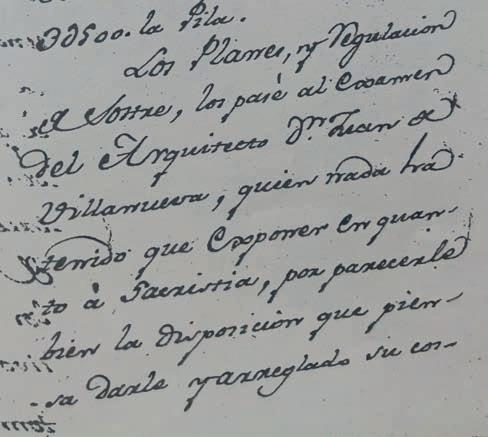 3500. la Pila.
Los Planes, y Regulacion
el Sostre, los pasè al Exsamen
del Arquitecto Dn. Juan de
Villanueva, quien nada ha
tenido que Exponer en quan-
to à Sacristia, por parecerle
bien la disposicion que pien-
sa darle y arreglado su cos-